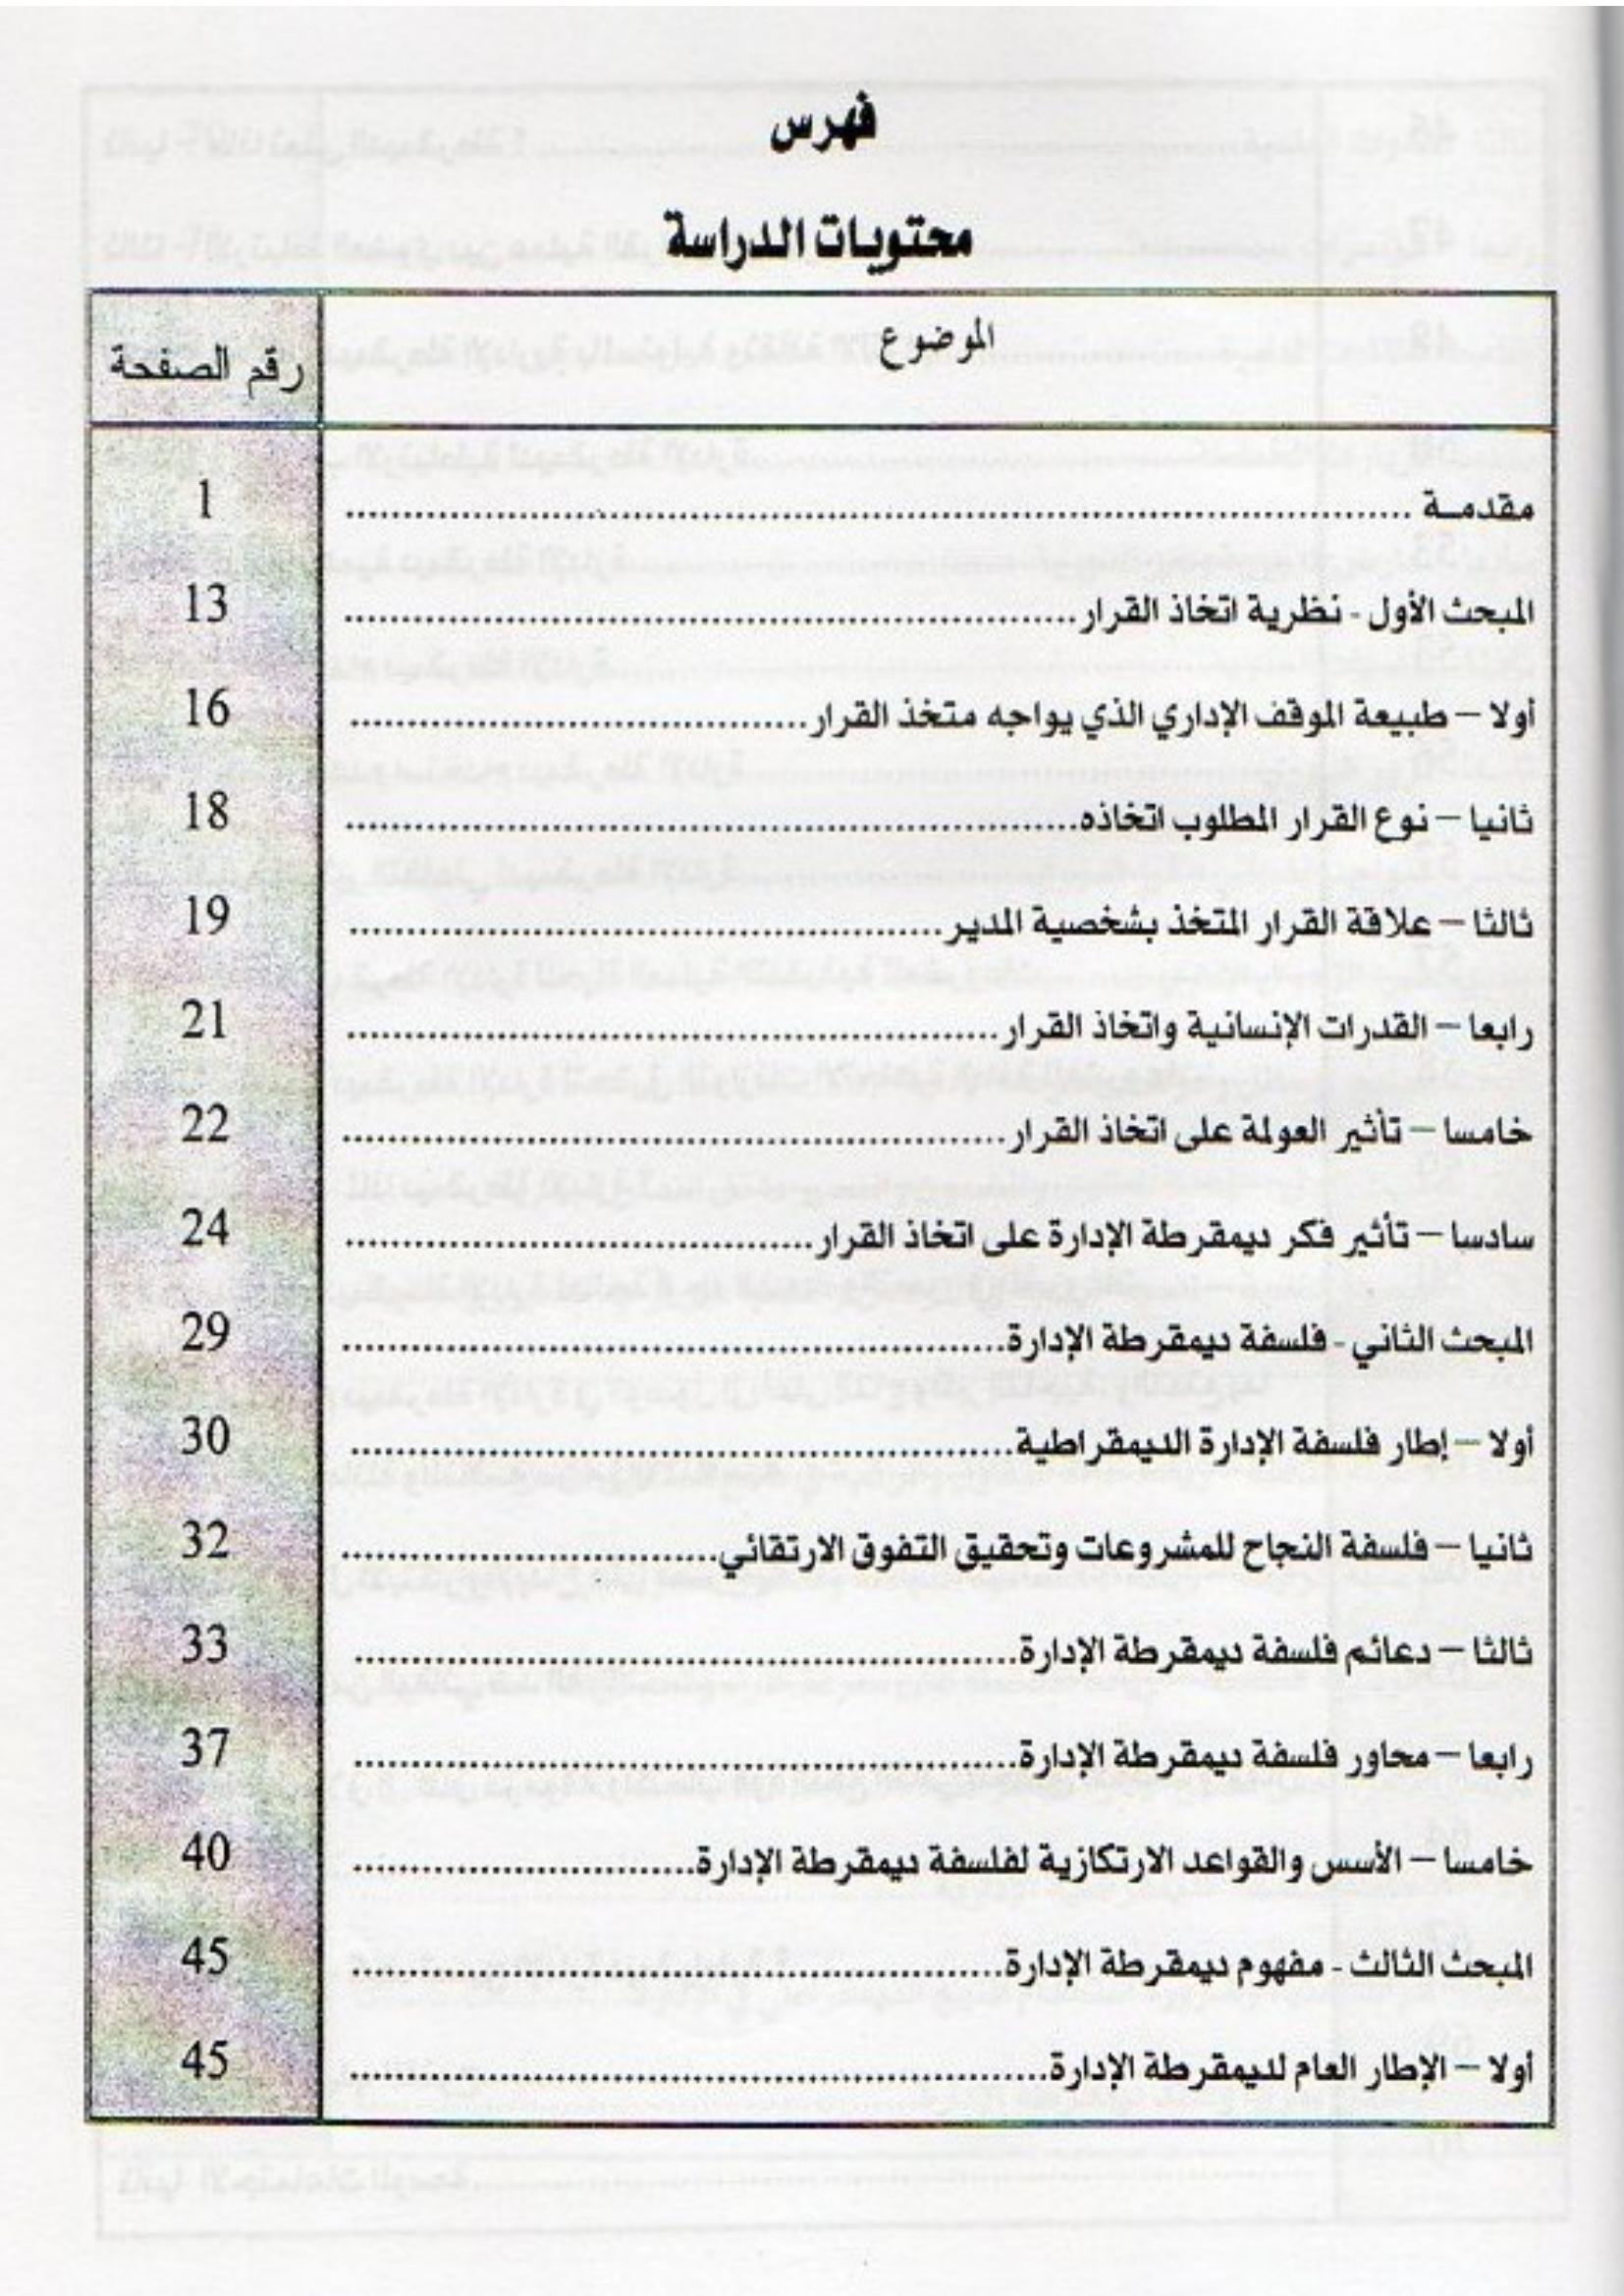 فهرس
محتويات الدراسة
الموضوع
رقم الصفحة
مقدمـة ........ 1
المبحث الأول - نظرية اتخاذ القرار........ 13
أولا – طبيعة الموقف الإداري الذي يواجه متخذ القرار........ 16
ثانيا – نوع القرار المطلوب اتخاذه........ 18
ثالثا – علاقة القرار المتخذ بشخصية المدير........ 19
رابعا – القدرات الإنسانية واتخاذ القرار........ 21
خامسا – تأثير العولمة على اتخاذ القرار........ 22
سادسا – تأثير فكر ديمقرطة الإدارة على اتخاذ القرار........ 24
المبحث الثاني - فلسفة ديمقرطة الإدارة........ 29
أولا – إطار فلسفة الإدارة الديمقراطية........ 30
ثانيا – فلسفة النجاح للمشروعات وتحقيق التفوق الارتقائي........ 32
ثالثا – دعائم فلسفة ديمقرطة الإدارة........ 33
رابعا – محاور فلسفة ديمقرطة الإدارة........ 37
خامسا – الأسس والقواعد الارتكازية لفلسفة ديمقرطة الإدارة........ 40
المبحث الثالث - مفهوم ديمقرطة الإدارة........ 45
أولا – الإطار العام لديمقرطة الإدارة........ 45